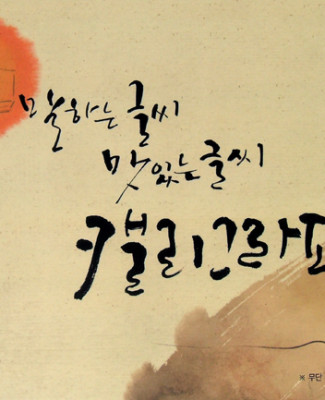 말하는 글씨
맛있는 글씨
캘리그라피
※ 무단